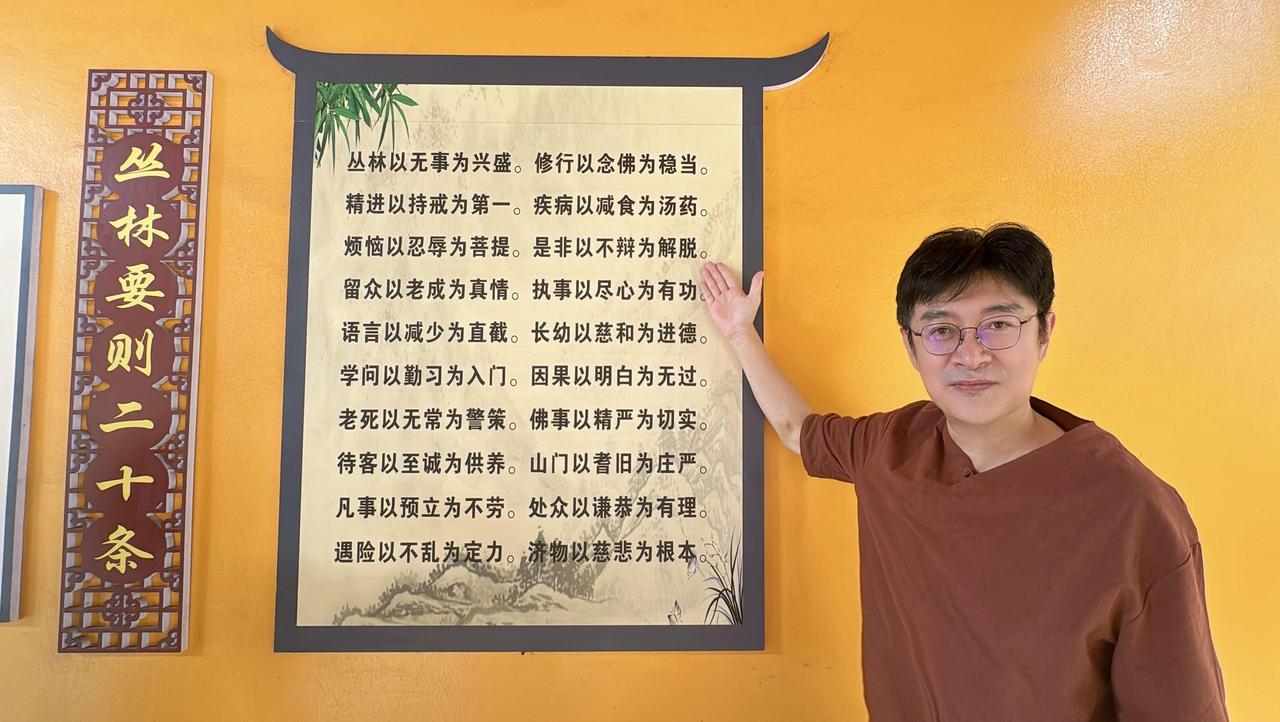 丛林要则二十条
丛林以无事为兴盛。修行以念佛为稳当。
精进以持戒为第一。疾病以减食为汤药。
烦恼以忍辱为菩提。是非以不辩为解脱。
留众以老成为真情。执事以尽心为有功。
语言以减少为直截。长幼以慈和为进德。
学问以勤习为入门。因果以明白为无过。
老死以无常为警策。佛事以精严为切实。
待客以至诚为供养。山门以耆旧为庄严。
凡事以预立为不劳。处众以谦恭为有理。
遇险以不乱为定力。济物以慈悲为根本。